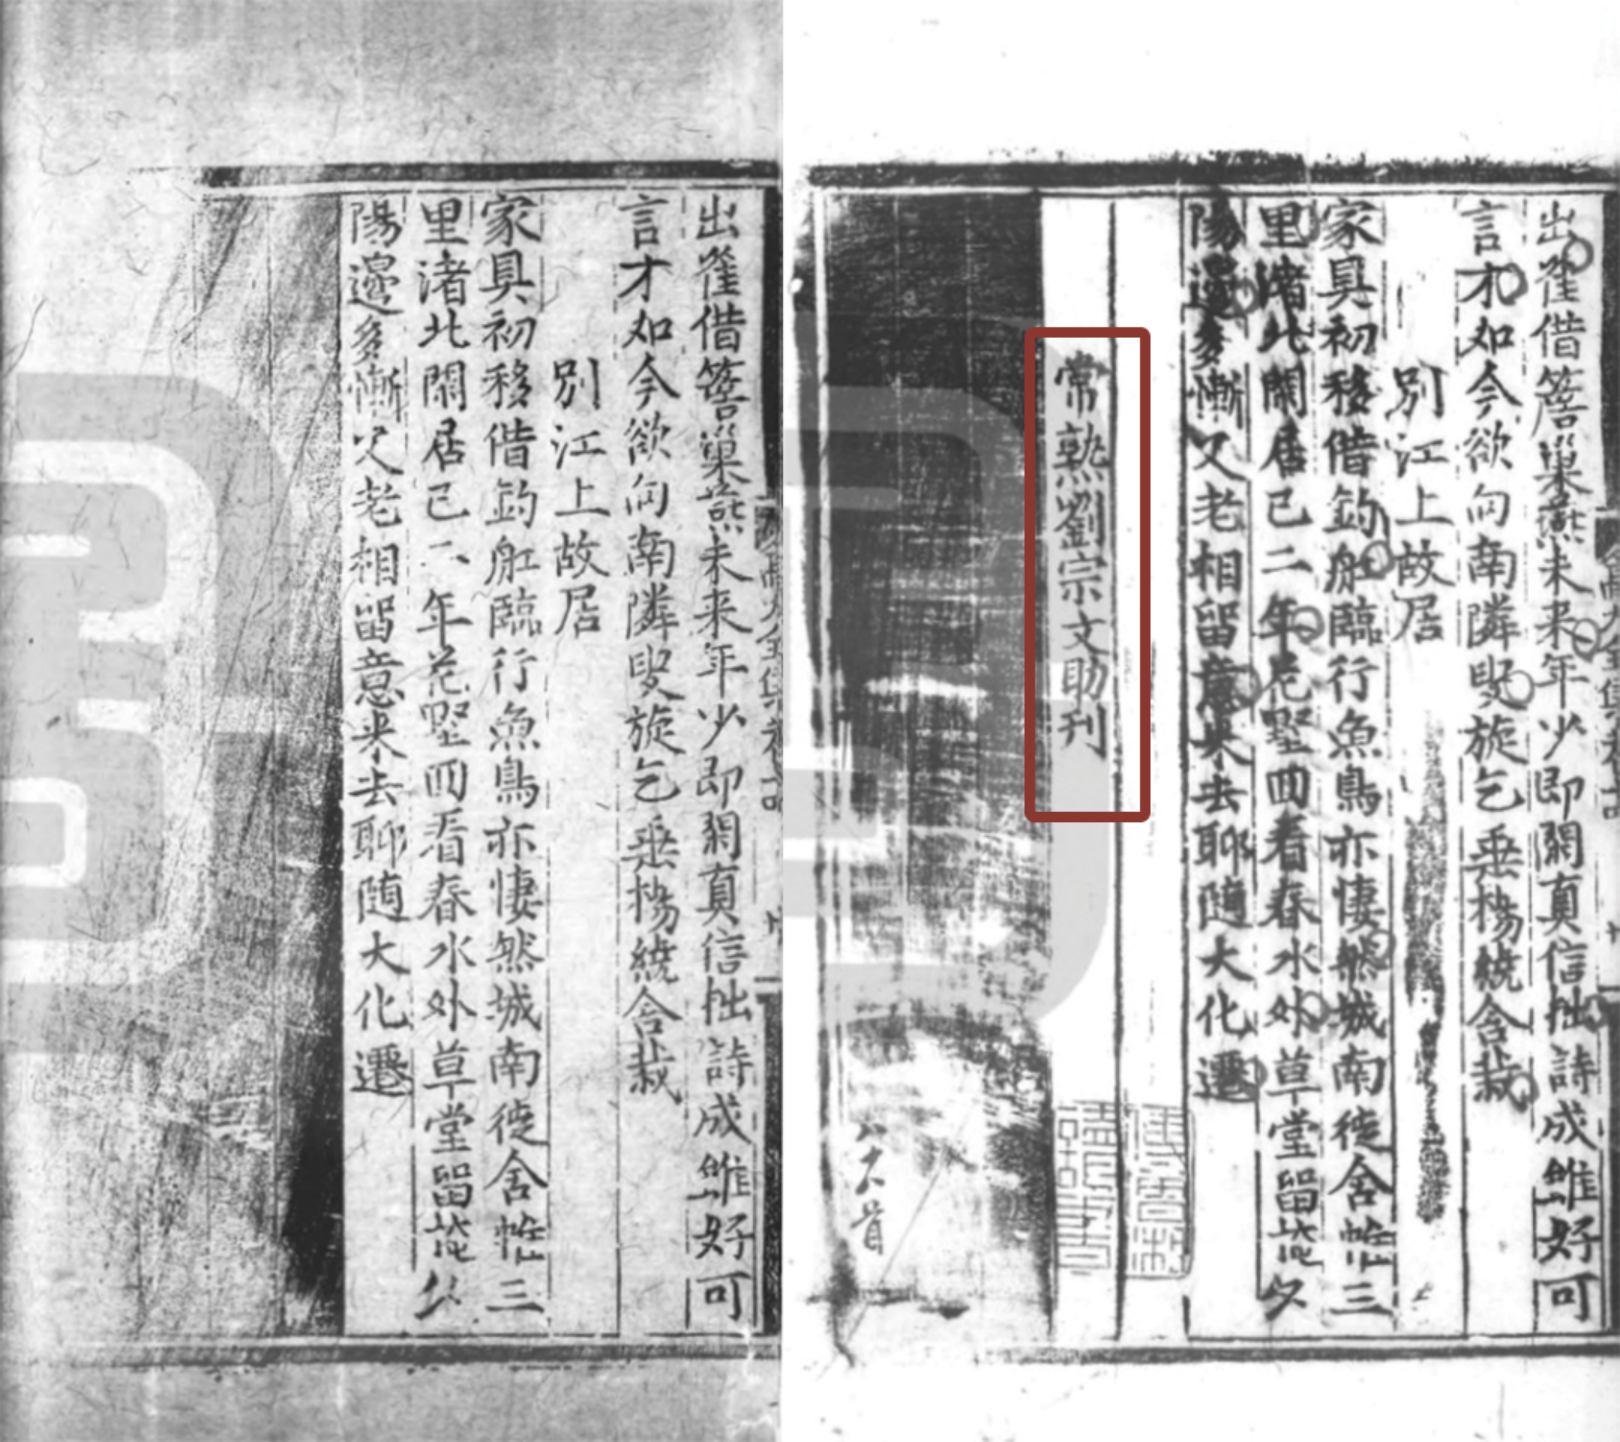 出雀借簷巢燕未来年少即開真信拙詩成雖好可
言才如今欲向南隣叟旋乞垂楊繞舍栽
別江上故居
家具初移借釣舡臨行魚鳥亦悽然城南徙舍惟三
里渚北閑居已二年花墅回看春水外草堂留在
陽邊多慚父老相留意来去聊隨大化遷
出雀借簷巢燕未来年少即開真信拙詩成雖好可
言才如今欲向南隣叟旋乞垂楊繞舍栽
別江上故居
家具初移借釣舡臨行魚鳥亦悽然城南徙舍惟三
里渚北閑居已二年花墅回看春水外草堂留在夕
陽邊多慚父老相留意来去聊隨大化遷
常熟劉宗文助刊